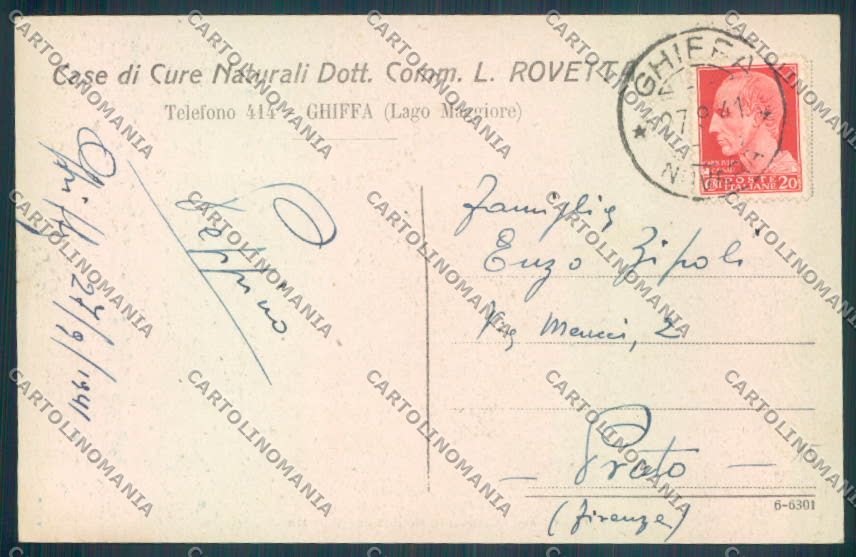 Case di Cure Naturali Dott. Comm. L. ROVETTA
Telefono 414 - GHIFFA (Lago Maggiore)
GHIFFA
27 9 41
POSTE
ITALIANE 20
27/9/1941
Peppino
famiglia
Enzo Zipoli
Via Meucci, 2
- Prato -
(Firenze)
6-6301
CARTOLINOMANIA